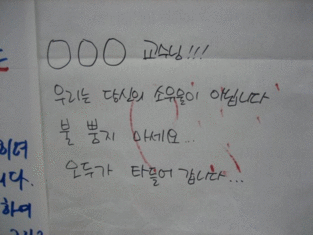 ○○○ 교수님!!!
우리는 당신의 소유물이 아닙니다
불 뿜지 마세요...
모두가 타들어 갑니다...
니다.
하여